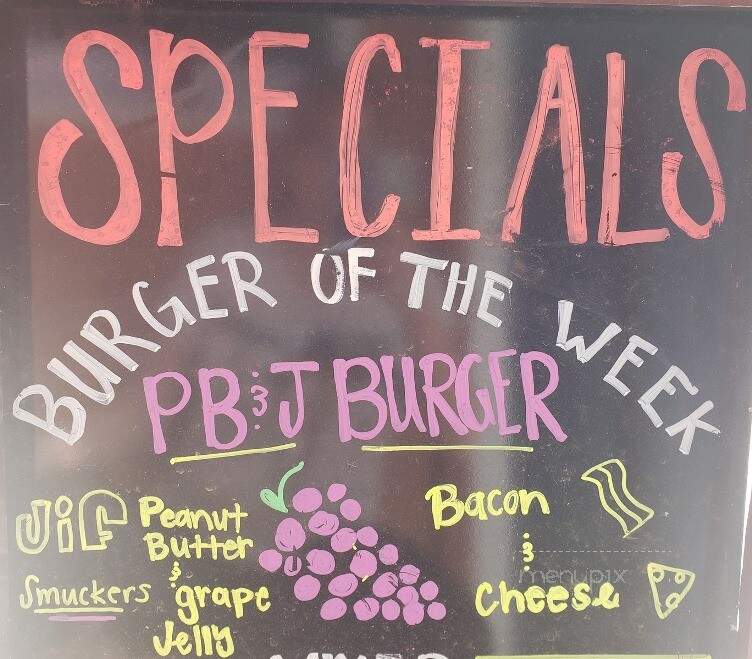 SPECIALS
BURGER OF THE WEEK
PB&J BURGER
Jif Peanut Butter
&
Smuckers grape Jelly
Bacon
&
Cheese
menupix